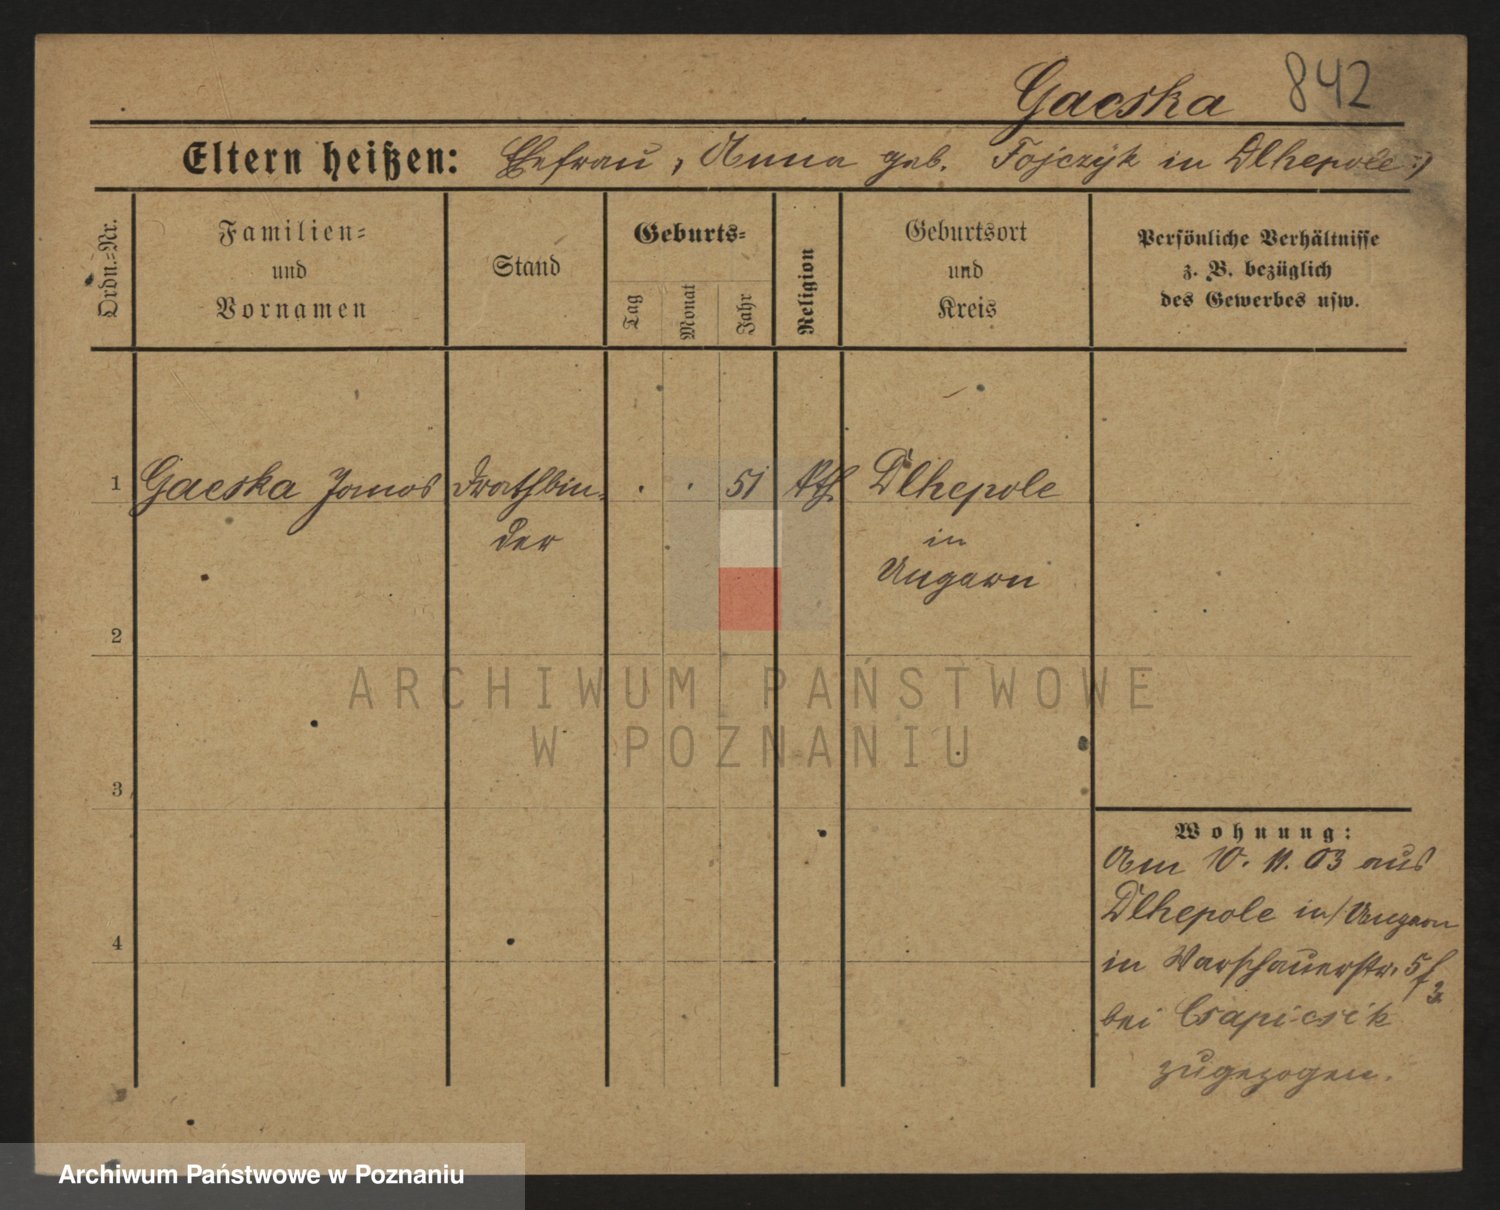 Gacska 842
Eltern heißen: Ehefrau, Anna geb. Fojczyk in Dlhepole :)
Ordn.-Nr.
Familien-
und
Vornamen
Stand
Geburts-
Tag
Monat
Jahr
Religion
Geburtsort
und
Kreis
Persönliche Verhältnisse
z. B. bezüglich
des Gewerbes usw.
1 Gacska Janos Drathbin- . . 51 kth Dlhepole
der in
Ungarn
2
ARCHIWUM PAŃSTWOWE
W POZNANIU
3
Wohnung:
Am 10. 11. 03 aus
Dlhepole in Ungarn
4
in Warschauerstr. 5
bei Csapicsik
zugezogen.
Archiwum Państwowe w Poznaniu